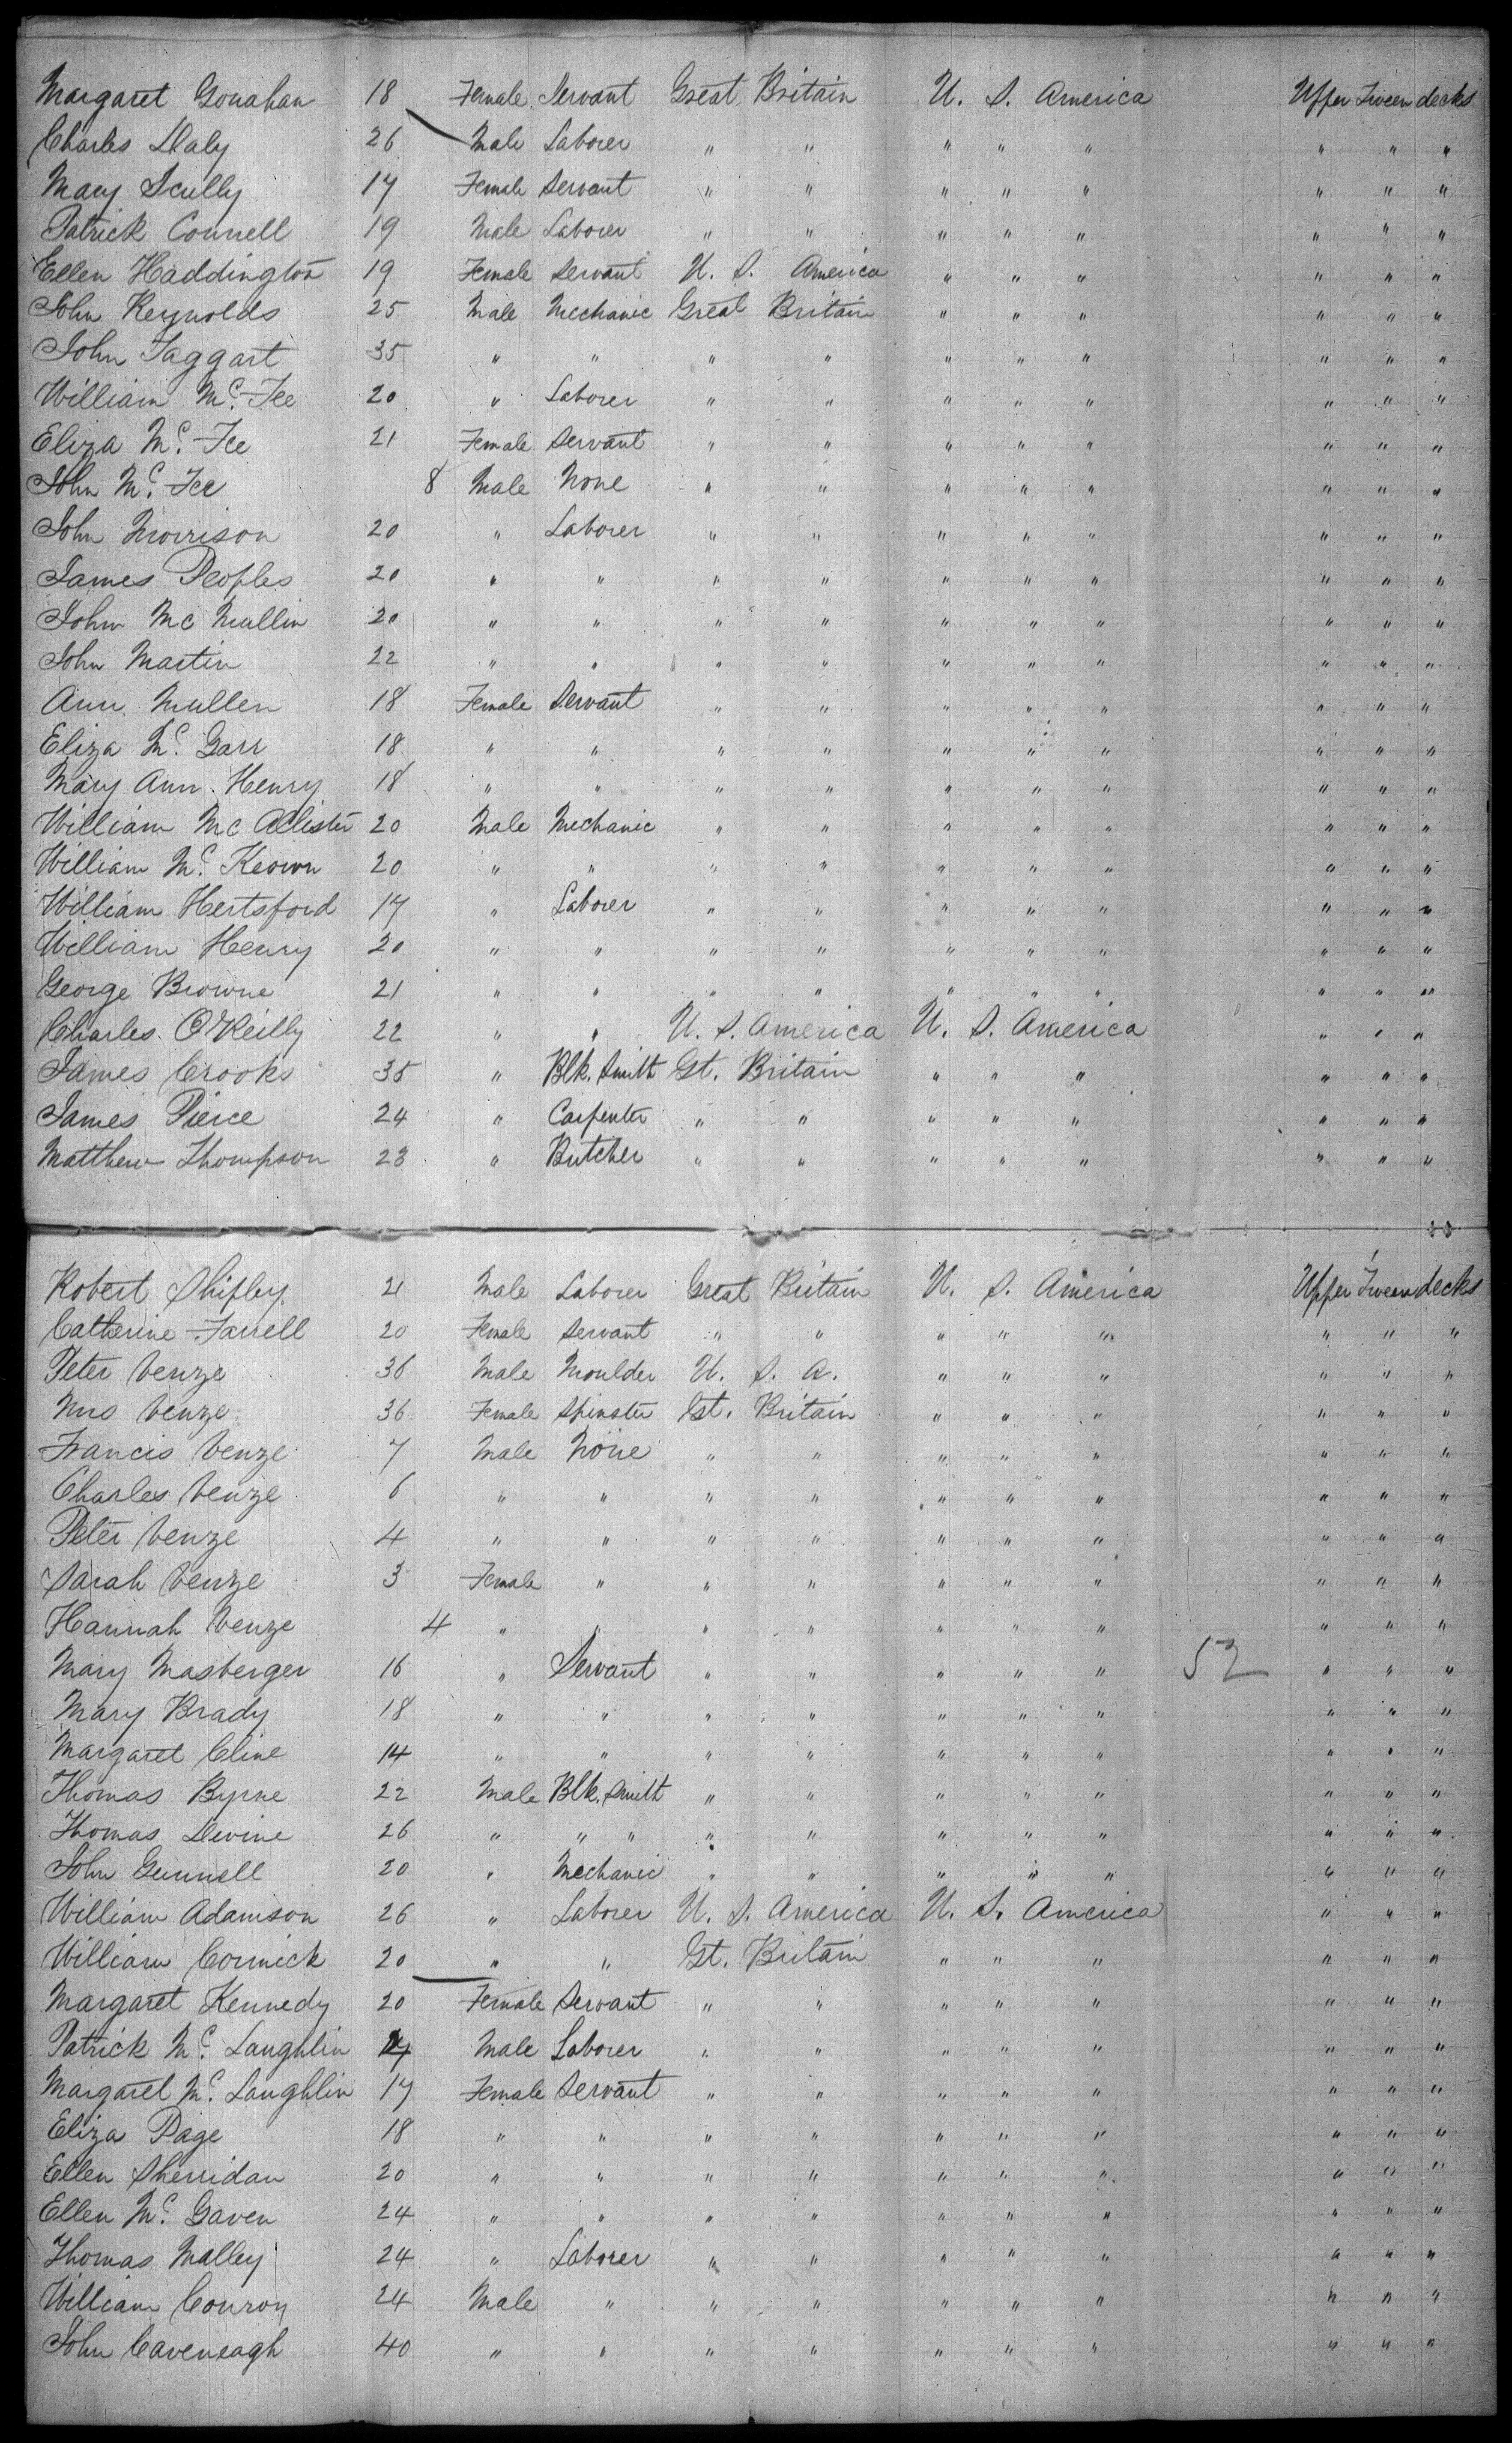 Margaret Gonahan 18 Female Servant Great Britain U. S. America Upper Tween decks
Charles Daly 26 Male Laborer " " " " " " " "
Mary Scully 17 Female Servant " " " " " " " "
Patrick Connell 19 Male Laborer " " " " " " " "
Ellen Haddington 19 Female Servant U. S. America " " " " " "
John Reynolds 25 Male Mechanic Great Britain " " " " " "
John Taggart 35 " " " " " " " " " "
William Mc. Fee 20 " Laborer " " " " " " " "
Eliza Mc. Fee 21 Female Servant " " " " " " " "
John Mc. Fee 8 Male None " " " " " " " "
John Morrison 20 " Laborer " " " " " " " "
James Peoples 20 " " " " " " " " " "
John Mc Mullin 20 " " " " " " " " " "
John Martin 22 " " " " " " " " " "
Ann Mullen 18 Female Servant " " " " " " " "
Eliza Mc. Garr 18 " " " " " " " " " "
Mary Ann Henry 18 " " " " " " " " " "
William Mc Allister 20 Male Mechanic " " " " " " " "
William Mc. Keown 20 " " " " " " " " " "
William Hertsford 17 " Laborer " " " " " " " "
William Henry 20 " " " " " " " " " "
George Browne 21 " " " " " " " " " "
Charles O'Reilly 22 " " U. S. America U. S. America " " "
James Crooks 35 " Blk. Smith Gt. Britain " " " " " "
James Pierce 24 " Carpenter " " " " " " " "
Matthew Thompson 23 " Butcher " " " " " " " "
Robert Shipley 21 Male Laborer Great Britain U. S. America Upper Tween decks
Catherine Farrell 20 Female Servant " " " " " " " "
Peter Venze 36 Male Moulder U. S. A. " " " " " "
Mrs Venze 36 Female Spinster Gt. Britain " " " " " "
Francis Venze 7 Male None " " " " " " " "
Charles Venze 6 " " " " " " " " " "
Peter Venze 4 " " " " " " " " " "
Sarah Venze 3 Female " " " " " " " " "
Hannah Venze 4 " " " " " " " " " "
Mary Masberger 16 " Servant " " " " " 52 " " "
Mary Brady 18 " " " " " " " " " "
Margaret Cline 14 " " " " " " " " " "
Thomas Byrne 22 Male Blk. Smith " " " " " " " "
Thomas Devine 26 " " " " " " " " " " "
John Gunnell 20 " Mechanic " " " " " " " "
William Adamson 26 " Laborer U. S. America U. S. America " " "
William Cormick 20 " " Gt. Britain " " " " " "
Margaret Kennedy 20 Female Servant " " " " " " " "
Patrick Mc. Laughlin Male Laborer " " " " " " " "
Margaret Mc. Laughlin 17 Female Servant " " " " " " " "
Eliza Page 18 " " " " " " " " " "
Ellen Sherridan 20 " " " " " " " " " "
Ellen Mc. Gaven 24 " " " " " " " " " "
Thomas Malley 24 " Laborer " " " " " " " "
William Conroy 24 Male " " " " " " " " "
John Caveneagh 40 " " " " " " " " " "